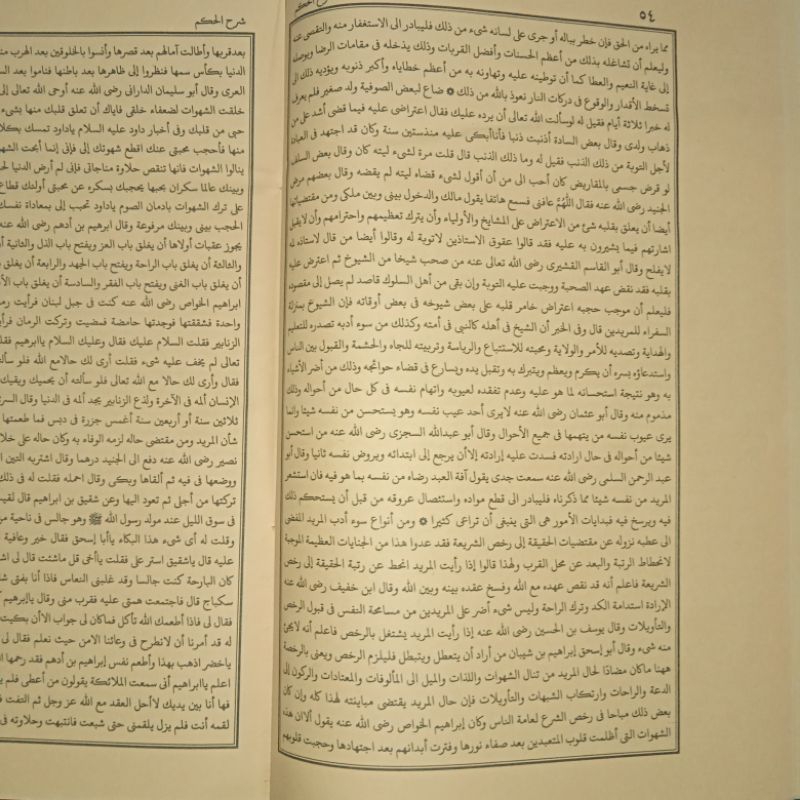 ٥٤
شرح الحكم
مما يراه من الحق فإن خطر بباله أو جرى على لسانه شىء من ذلك فليبادر الى الاستغفار منه والتقصى عنه
وليعلم أن تشاغله بذلك من أعظم الحسنات وأفضل القربات وذلك يدخله فى مقامات الرضا ويوصله
إلى غاية النعيم والعطا كما أن توطينه عليه وتهاونه به من أعظم خطاياه وأكبر ذنوبه ويؤديه ذلك الى
تسخط الأقدار والوقوع فى دركات النار نعوذ بالله من ذلك * ضاع لبعض الصوفية ولد صغير فلم يعرف
له خبرا ثلاثة أيام فقيل له لوسألت الله تعالى أن يرده عليك فقال اعتراضى عليه فيما قضى أشد على من
ذهاب ولدى وقال بعض السادة أذنبت ذنبا فأناأبكى عليه منذستين سنة وكان قد اجتهد فى العبادة
لأجل التوبة من ذلك الذنب فقيل له وما ذلك الذنب قال قلت مرة لشىء ليته كان وقال بعض السلف
لو قرض جسمى بالمقاريض كان أحب الى من أن أقول لشىء قضاه ليته لم يقضه وقال بعضهم مرض
الجنيد رضى الله عنه فقال اللهم عافنى فسمع هاتفا يقول مالك والدخول بينى وبين ملكى ومن مقتضياتها
أيضا أن يعلق بقلبه شئ من الاعتراض على المشايخ والأولياء وأن يترك تعظيمهم واحترامهم وأن لايقبل
اشارتهم فيما يشيرون به عليه فقد قالوا عقوق الاستاذين لاتوبة له وقالوا أيضا من قال لاستاذه لم
لايفلح وقال أبو القاسم القشيرى رضى الله تعالى عنه من صحب شيخا من الشيوخ ثم اعترض عليه
بقلبه فقد نقض عهد الصحبة ووجبت عليه التوبة وإن بقى من أهل السلوك قاصد لم يصل إلى مقصوده
فليعلم أن موجب حجبه اعتراض خامر قلبه على بعض شيوخه فى بعض أوقاته فإن الشيوخ بمنزلة
السفراء للمريدين قال وفى الخبر أن الشيخ فى أهله كالنبى فى أمته وكذلك من سوء أدبه تصدره للتعليم
والهداية وتصديه للأمر والولاية ومحبته للاستتباع والرياسة وتربيته للجاه والحشمة والقبول بين الناس
واستدعاؤه بسره أن يكرم ويعظم ويتبرك به وتقبل يده ويسارع فى قضاء حوائجه وذلك من أضر الأشياء
به وهو نتيجة استحسانه لما هو عليه وعدم تفقده لعيوبه واتهام نفسه فى كل حال من أحواله وذلك
مذموم منه وقال أبو عثمان رضى الله عنه لايرى أحد عيب نفسه وهو يستحسن من نفسه شيئا وانما
يرى عيوب نفسه من يتهمها فى جميع الأحوال وقال أبو عبدالله السجزى رضى الله عنه من استحسن
شيئا من أحواله فى حال ارادته فسدت عليه إرادته إلاأن يرجع إلى ابتدائه ويروض نفسه ثانيا وقال أبو
عبد الرحمن السلمى رضى الله عنه سمعت جدى يقول آفة العبد رضاه من نفسه بما هو فيه فان استشعر
المريد من نفسه شيئا مما ذكرناه فليبادر الى قطع مواده واستئصال عروقه من قبل أن يستحكم ذلك
فيه ويرسخ فيه فبدايات الأمور هى التى ينبغى أن تراعى كثيرا * ومن أنواع سوء أدب المريد المفضى
الى عطبه نزوله عن مقتضيات الحقيقة إلى رخص الشريعة فقد عدوا هذا من الجنايات العظيمة الموجبة
لانحطاط الرتبة والبعد عن محل القرب ولهذا قالوا إذا رأيت المريد انحط عن رتبة الحقيقة إلى رخص
الشريعة فاعلم أنه قد نقص عهده مع الله وفسخ عقده بينه وبين الله وقال ابن خفيف رضى الله عنه
الإرادة استدامة الكد وترك الراحة وليس شىء أضر على المريدين من مسامحة النفس فى قبول الرخص
والتأويلات وقال يوسف بن الحسين رضى الله عنه إذا رأيت المريد يشتغل بالرخص فاعلم أنه لايجئ
منه شىء وقال أبو إسحق إبراهيم بن شيبان من أراد أن يتعطل ويتبطل فليلزم الرخص ويعنى بالرخصة
ههنا ماكان مضادا لحال المريد من تنال الشهوات واللذات والميل الى المألوفات والمعتادات والركون إلى
الدعة والراحات وارتكاب الشبهات والتأويلات فإن حال المريد يقتضى مباينته لهذا كله وإن كان
بعض ذلك مباحا فى رخص الشرع لعامة الناس وكان إبراهيم الخواص رضى الله عنه يقول ألاان هذه
الشهوات التى أظلمت قلوب المتعبدين بعد صفاء نورها وفترت أبدانهم بعد اجتهادها وحجبت قلوبهم
شرح الحكم
بعدقربها وأطالت آمالهم بعد قصرها وأنسوا بالمخلوقين بعد الهرب
الدنيا بكأس سمها فنظروا إلى ظاهرها بعد باطنها فناموا بعد
العرى وقال أبو سليمان الدارانى رضى الله عنه أوحى الله تعالى إلى
خلقت الشهوات لضعفاء خلقى فاياك أن تعلق قلبك منها بشىء
حبى من قلبك وفى أخبار داود عليه السلام ياداود تمسك
منها فأحجب محبتى عنك اقطع شهوتك إلى فإنى إنما أبحت
ينالوا الشهوات فانها تنقص حلاوة مناجاتى فإنى لم أرض الدنيا
وبينك عالما سكران بحبها يحجبك بسكره عن محبتى أولئك قطاع
على ترك الشهوات بادمان الصوم ياداود تحبب إلى بمعاداة نفسك
الحجب بينى وبينك مرفوعة وقال ابرهيم بن أدهم رضى الله عنه
يجوز عقبات أولاها أن يغلق باب العز ويفتح باب الذل والثانية
والثالثة أن يغلق باب الراحة ويفتح باب الجهد والرابعة أن يغلق
أن يغلق باب الغنى ويفتح باب الفقر والسادسة أن يغلق باب
ابراهيم الخواص رضى الله عنه كنت فى جبل لبنان فرأيت
واحدة فشققتها فوجدتها حامضة فمضيت وتركت الرمان
الزنابير فقلت السلام عليك فقال وعليك السلام ياابرهيم
تعالى لم يخف عليه شىء فقلت أرى لك حالامع الله فلو
فقال وأرى لك حالا مع الله تعالى فلو سألته أن يحميك ويقيك
الإنسان ألمه فى الآخرة ولدغ الزنابير يجد ألمه فى الدنيا وقال
ثلاثين سنة أو أربعين سنة أغمس جزرة فى دبس فما طعمتها
شأن المريد ومن مقتضى حاله لزمه الوفاء به وكان حاله على
نصير رضى الله عنه دفع الى الجنيد درهما وقال اشتربه التين
ووضعها فى فيه ثم ألقاها وبكى وقال احمله فقلت له فى ذلك
تركتها من أجلى ثم تعود اليها وعن شقيق بن ابراهيم قال
فى سوق الليل عند مولد رسول الله ﷺ وهو جالس فى ناحية
وقلت له أى شىء هذا البكاء ياأبا إسحق فقال خير وعافية
عليه قال ياشقيق استر على فقلت ياأخى قل ماشئت قال لى
كان البارحة كنت جالسا وقد غلبنى النعاس فاذا أنا بفتى
سكباج قال فاجتمعت همتى عليه فقرب منى وقال ياإبراهيم
فقال لى فاذا أطعمك الله تأكل فماكان لى جواب الاأن بكيت
له قد أمرنا أن لانطرح فى وعائنا الامن حيث نعلم فقال لى
ياخضر اذهب بهذا وأطعم نفس إبراهيم بن أدهم فقد رحمها
اعلم ياابرهيم أنى سمعت الملائكة يقولون من أعطى فلم
فها أنا بين يديك لاأحل العقد مع الله عز وجل ثم التفت
لقمه أنت فلم يزل يلقمنى حتى شبعت فانتبهت وحلاوته